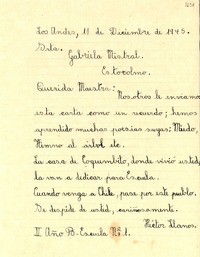 Los Andes, 11 de Diciembre de 1945.
Srta.
Gabriela Mistral.
Estocolmo.
Querida Maestra:
Nosotros le enviamos
esta carta como un recuerdo; hemos
aprendido muchas poesías suyas; Miedo,
Himno al árbol etc.
La casa de Coquimbito, donde vivió usted,
la van a dedicar para Escuela.
Cuando venga a Chile, pase por este pueblo.
Se despide de usted, cariñosamente.
Héctor Llanos.
II Año B. Escuela Nº 1.